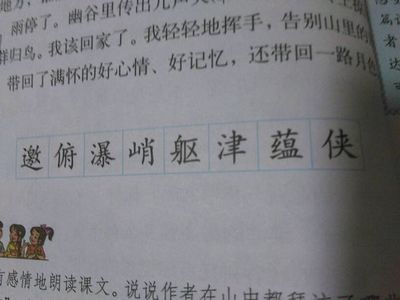 雨停了。幽谷里传出几声
归鸟。我该回家了。我轻轻地挥手,告别山里的
带回了满怀的好心情、好记忆,还带回一路月色
邀俯瀑峭躯津蕴侠
有感情地朗读课文。说说作者在山中都拜访了